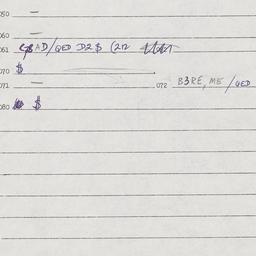 050 —
060 —
061 BAD/QED D2$ (212
070 $
071 — 072 B3RE, ME/QED
080 $